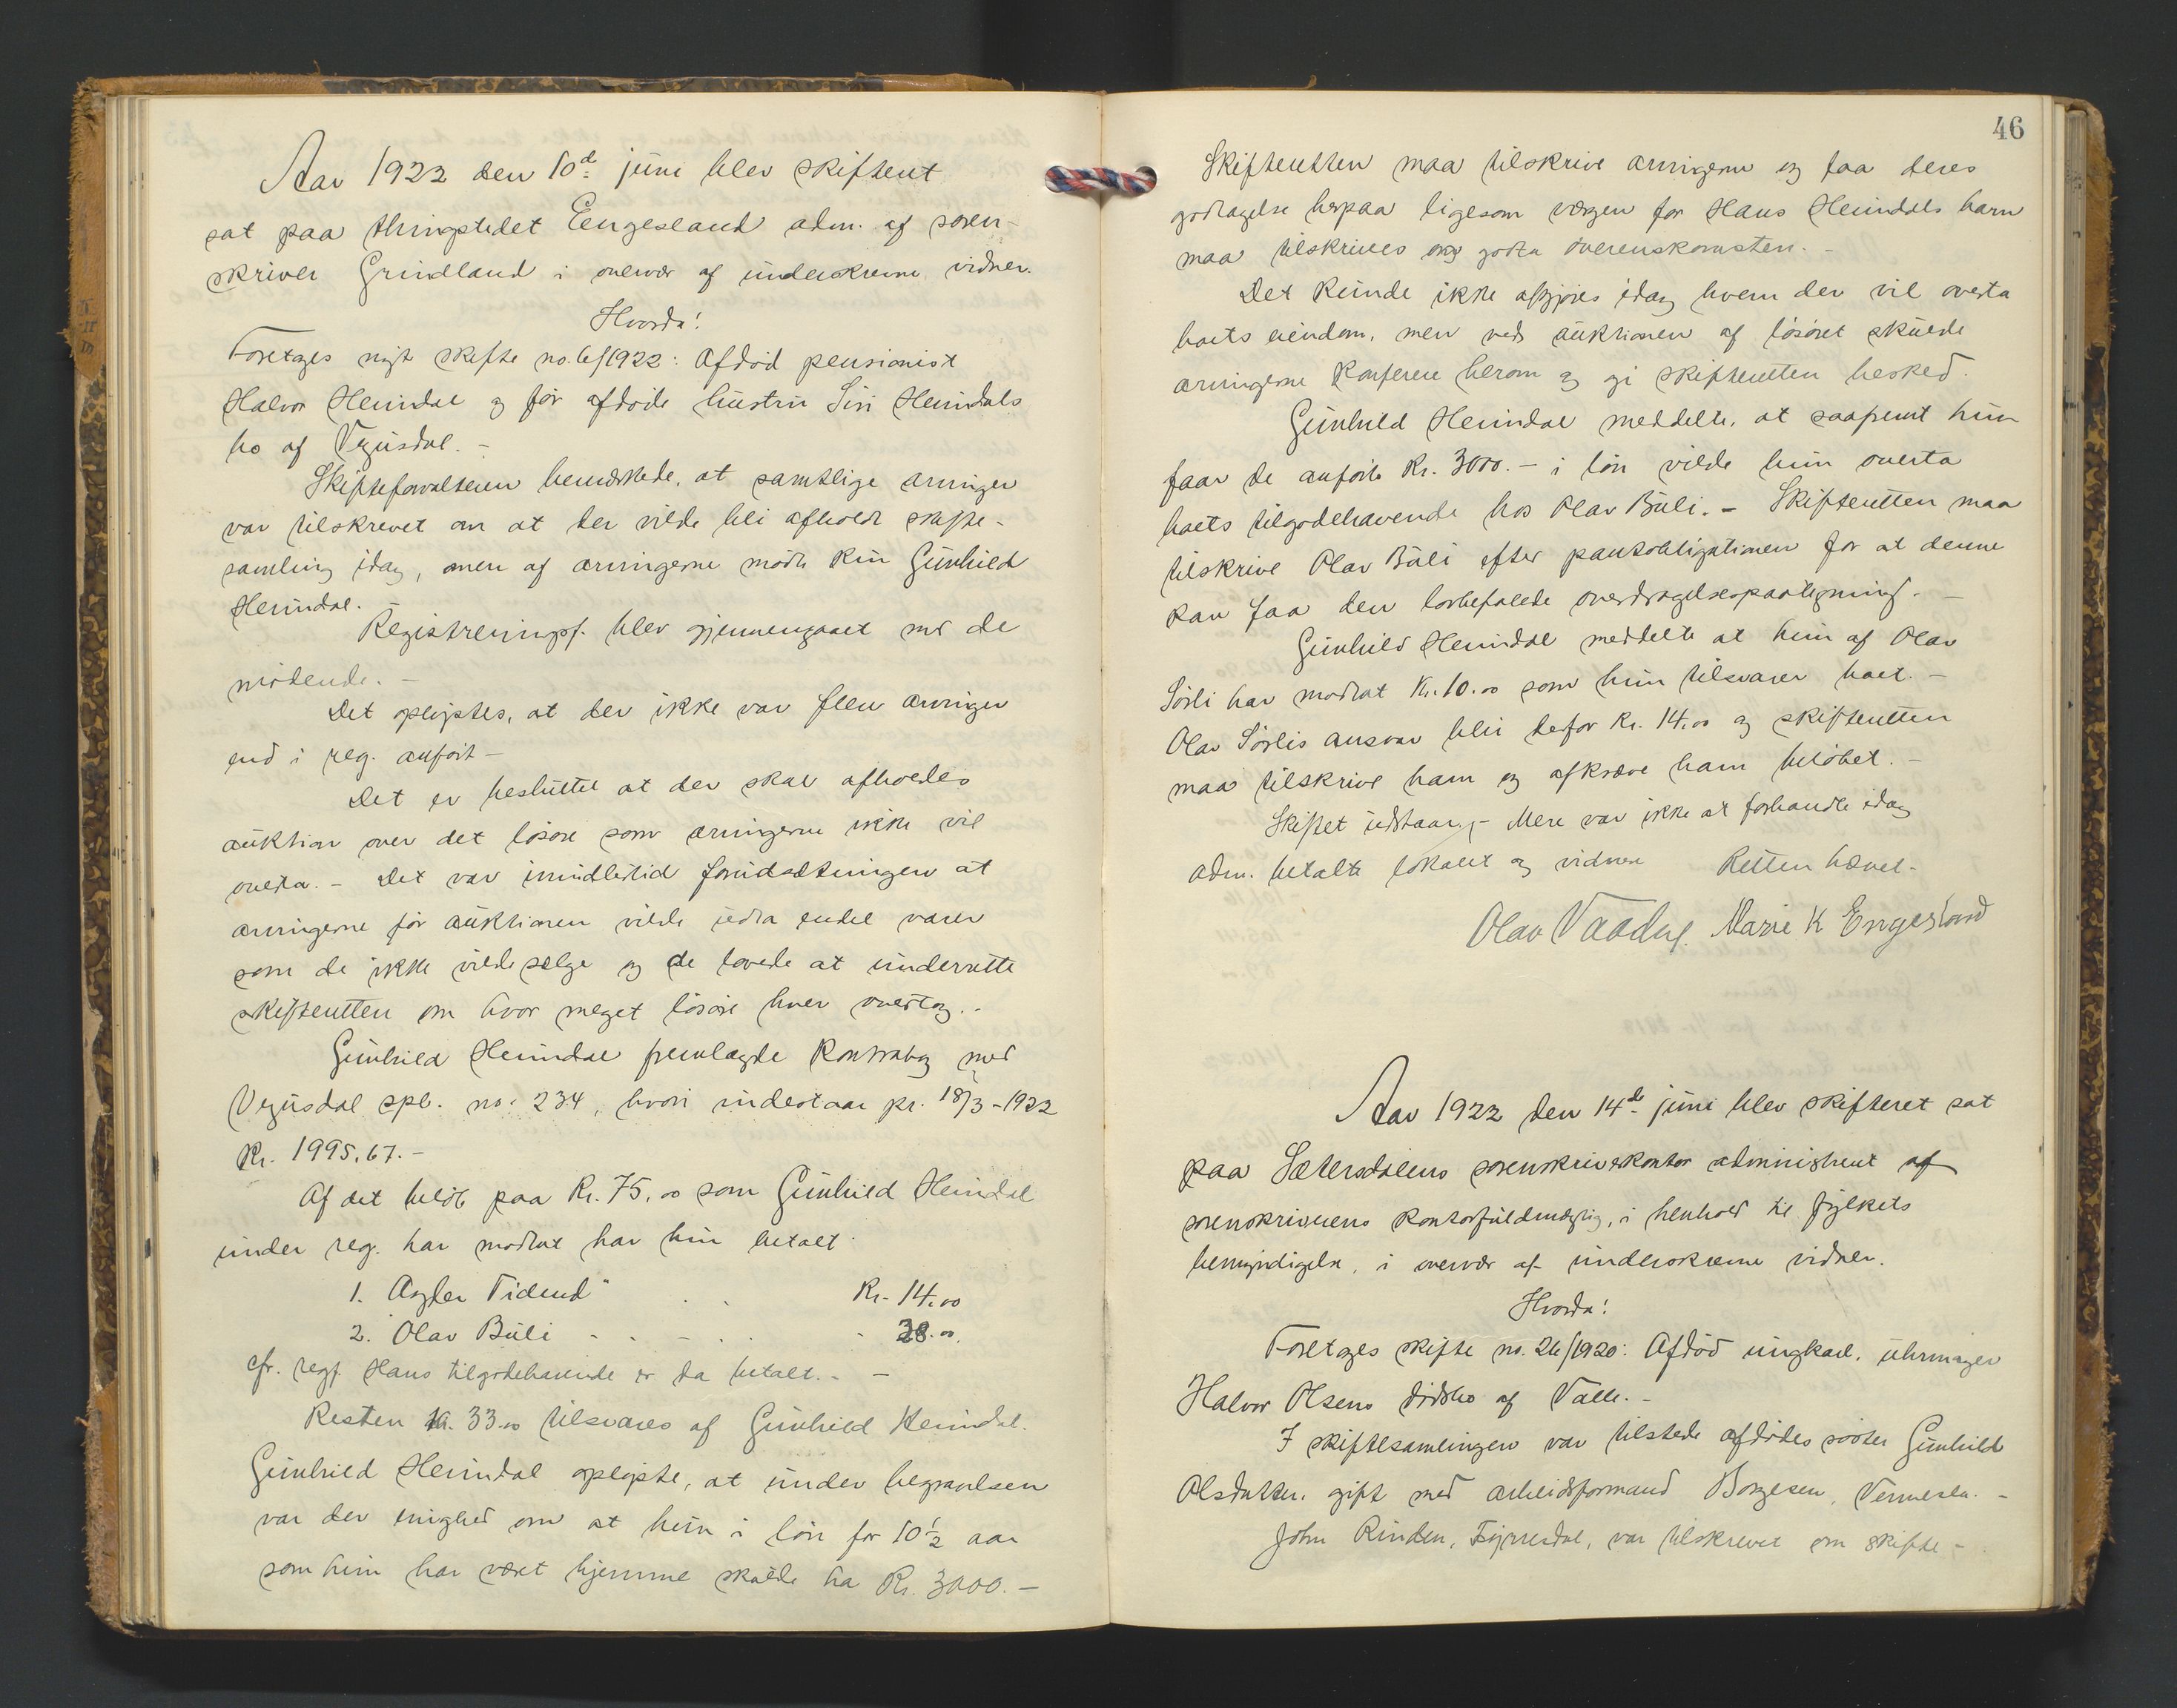 Aar 1922 den 10de juni blev skifteret
sat paa thingstedet Eengesland adm. af soren-
skriver Grindland i overvær af underskrevne vidner.
Hvorda!
Foretages nyt skifte no. 6/1922: Afdød pensionist
Halvor Heimdal og før afdøde hustru Siri Heimdals
bo af Vegusdal. -
Skifteforvalteren bemærkede, at samtlige arvinger
var tilskrevet om at der vilde bli afholdt skifte-
samling idag, men af arvingerne mødte kun Gunhild
Heimdal. -
Registreringsf. blev gjennemgaaet med de
mødende. -
Det oplystes, at der ikke var flere arvinger
end i reg. anført -
Det er besluttet at der skal afholdes
auktion over det løsøre som arvingerne ikke vil
overta. - Det var imidlertid forudsætningen at
arvingerne før auktionen vilde udta endel varer
som de ikke vilde selge og de lovede at underrette
skifteretten om hvor meget løsøre hver overtog..
Gunhild Heimdal fremlagde kontrabog med
Vegusdal spb. no. 234, hvori indestaar pr. 18/3-1922
Kr. 1995,67. -
Af det beløb paa Kr. 75.00 som Gunhild Heimdal
under reg. har modtat har hun betalt
1. Agder Tidend" . . Kr. 14.00
2. Olav Buli - . - . . - 28.00
cfr. regf. Hans tilgodehavende er da betalt. - -
Resten Kr. 33.00 tilsvares af Gunhild Heimdal.
Gunhild Heimdal oplyste, at under begravelsen
var der enighed om at hun i løn for 10 1/2 aar
som hun har været hjemme skulde ha Kr. 3000. -
46
Skifteretten maa tilskrive arvingerne og faa deres
godtagelse herpaa ligesom værgen for Hans Heimdals barn
maa tilskrives og godta overenskomsten. -
Det kunde ikke afgjøres idag hvem der vil overta
boets eiendom, men ved auktionen af løsøret skulde
arvingerne konferere herom og gi skifteretten besked.
Gunhild Heimdal meddelte, at saafremt hun
faar de anførte Kr. 3000. - i løn vilde hun overta
boets tilgodehavende hos Olav Buli. - Skifteretten maa
tilskrive Olav Buli efter pantobligationen for at denne
kan faa den lovbefalede overdragelsespaategning. -
Gunhild Heimdal meddelte at hun af Olav
Sørli har modtat Kr. 10.00 som hun tilsvarer boet. -
Olav Sørlis ansvar blir derfor Kr. 14.00 og skifteretten
maa tilskrive ham og afkræve ham beløbet. -
Skiftet udstaar, - Mere var ikke at forhandle idag
adm. betalte lokalet og vidner Retten hævet. -
Olav Marie K Engesland
Aar 1922 den 14de juni blev skifteret sat
paa Sætersdalens sorenskriverkontor administrert af
sorenskriverens kontorfuldmægtig, i henhold til fylkets
bemyndigelse, i overvær af underskrevne vidner.
Hvorda!
Foretages skifte no. 26/1920: Afdød ungkarl, uhrmager
Halvor Olsens dødsbo af Valle. -
I skiftesamlingen var tilstede afdødes søster Gunhild
Olsdatter, gift med arbeidsformand Borgesen, Vennesla. -
John Rinden, Fyrresdal, var tilskrevet om skifte -